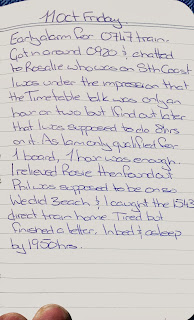 11 Oct Friday.
Early alarm for 0747 train.
Got in around 0920 & chatted
to Rosalie who was on Sth Coast
I was under the impression that
the Timetable talk was only an
hour or two but I find out later
that I was supposed to do 8hrs
on it. As I am only qualified for
1 board, 1 hour was enough.
I relieved Rosie then found out
Phil was supposed to be on so
We did 3 each & I caught the 1543
direct train home. Tired but
finished a letter. In bed & asleep
by 1950hrs.